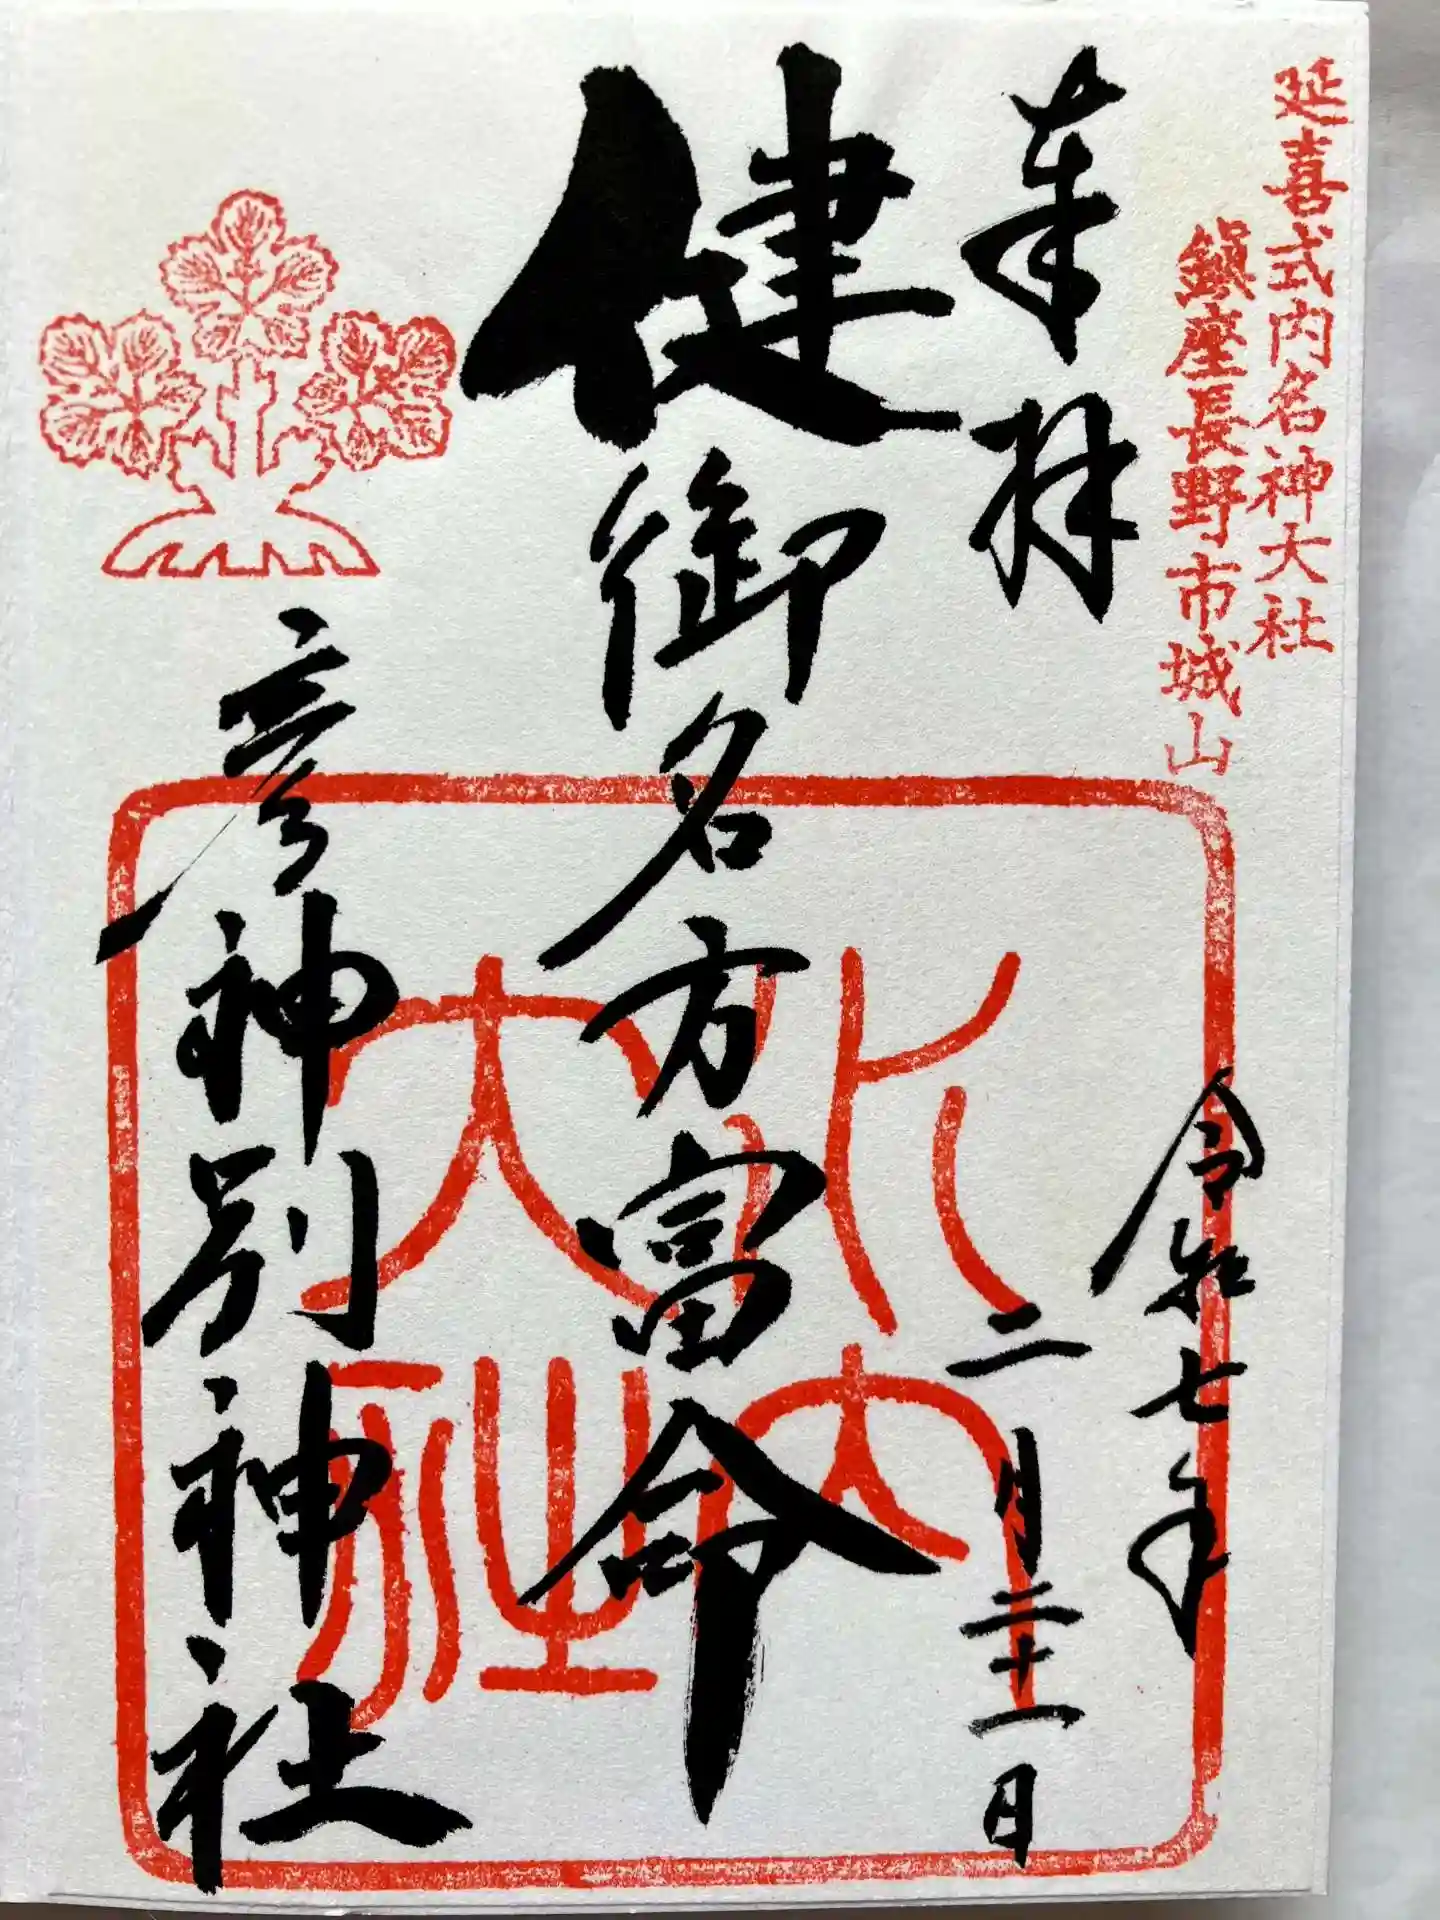 延喜式内名神大社
鎮座長野市城山
奉拝
令和七年
二月二十一日
健御名方富命
彦神別神社
水内
大社